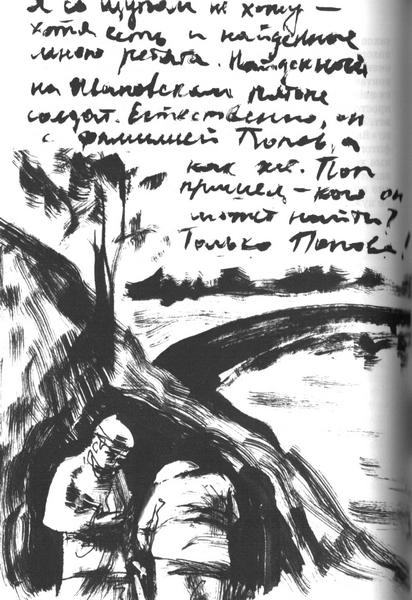 Я со щупом не хожу –
хотя есть и найденные
мною ребята. Найденный
на Ивановском пятачке
солдат. Естественно, он
с фамилией Попов, а
как же. Поп
пришел – кого он
может найти?
Только Попова!